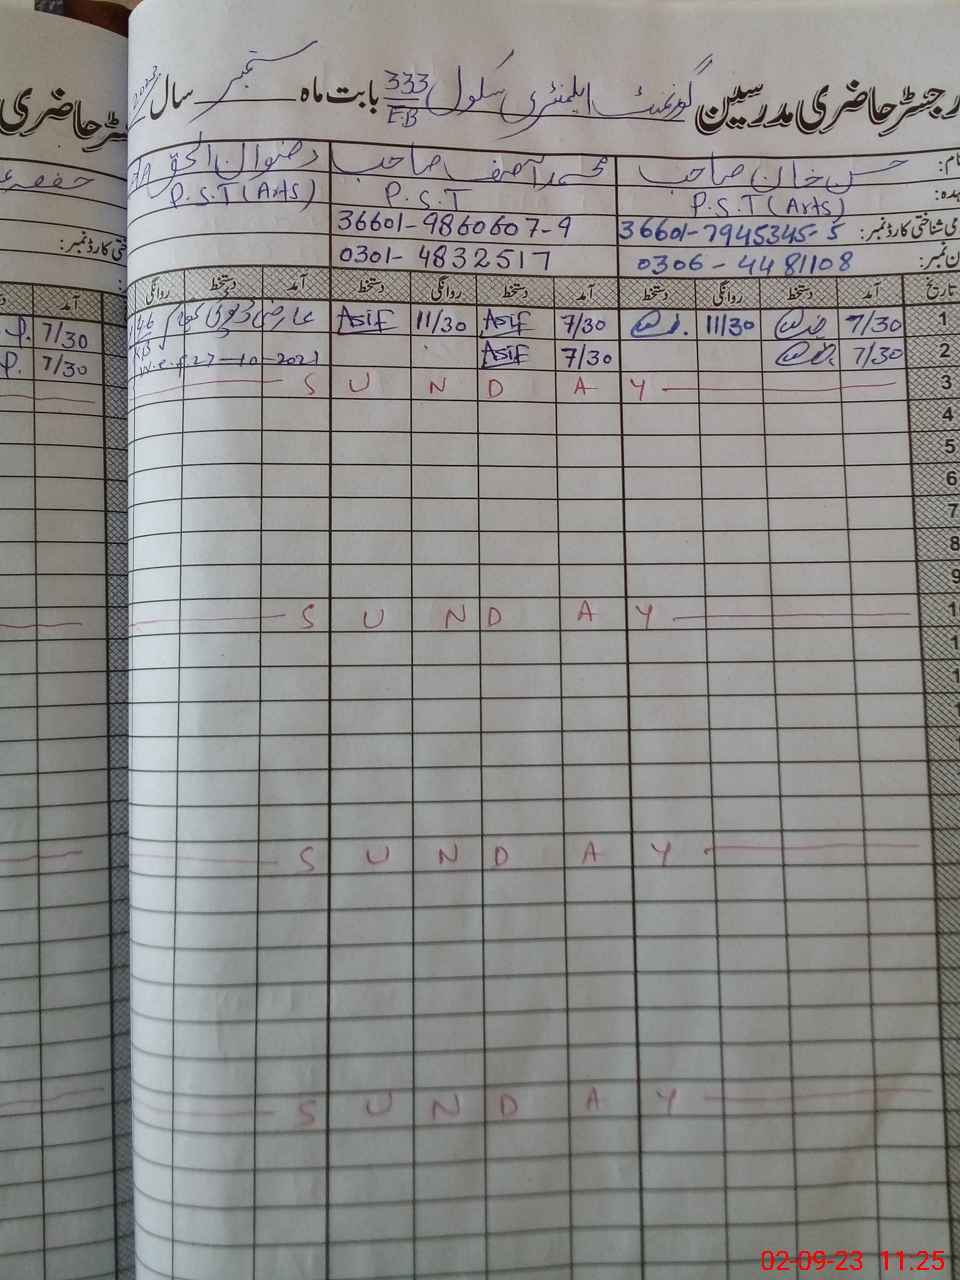 رجسٹر حاضری مدرسین گورنمنٹ ایلمنٹری سکول 333/EB بابت ماہ ستمبر سال 2023
نام: حسن خان صاحب محمد آصف صاحب رضوان الحق
P.S.T (Arts) P.S.T P.S.T (Arts)
36601-7945345-5 36601-9860607-9
0306-4481108 0301-4832517
تاریخ آمد دستخط روانگی دستخط آمد دستخط روانگی دستخط آمد دستخط روانگی
1 7/30 11/30 7/30 Asif 11/30 Asif عارضی ڈیوٹی
2 7/30 7/30 Asif w.e.f. 27-10-2021
3 SUNDAY
4
5
6
7
8
9
SUNDAY
SUNDAY
SUNDAY
رجسٹر حاضری
شناختی کارڈ نمبر:
آمد
7/30
7/30
02-09-23 11.25